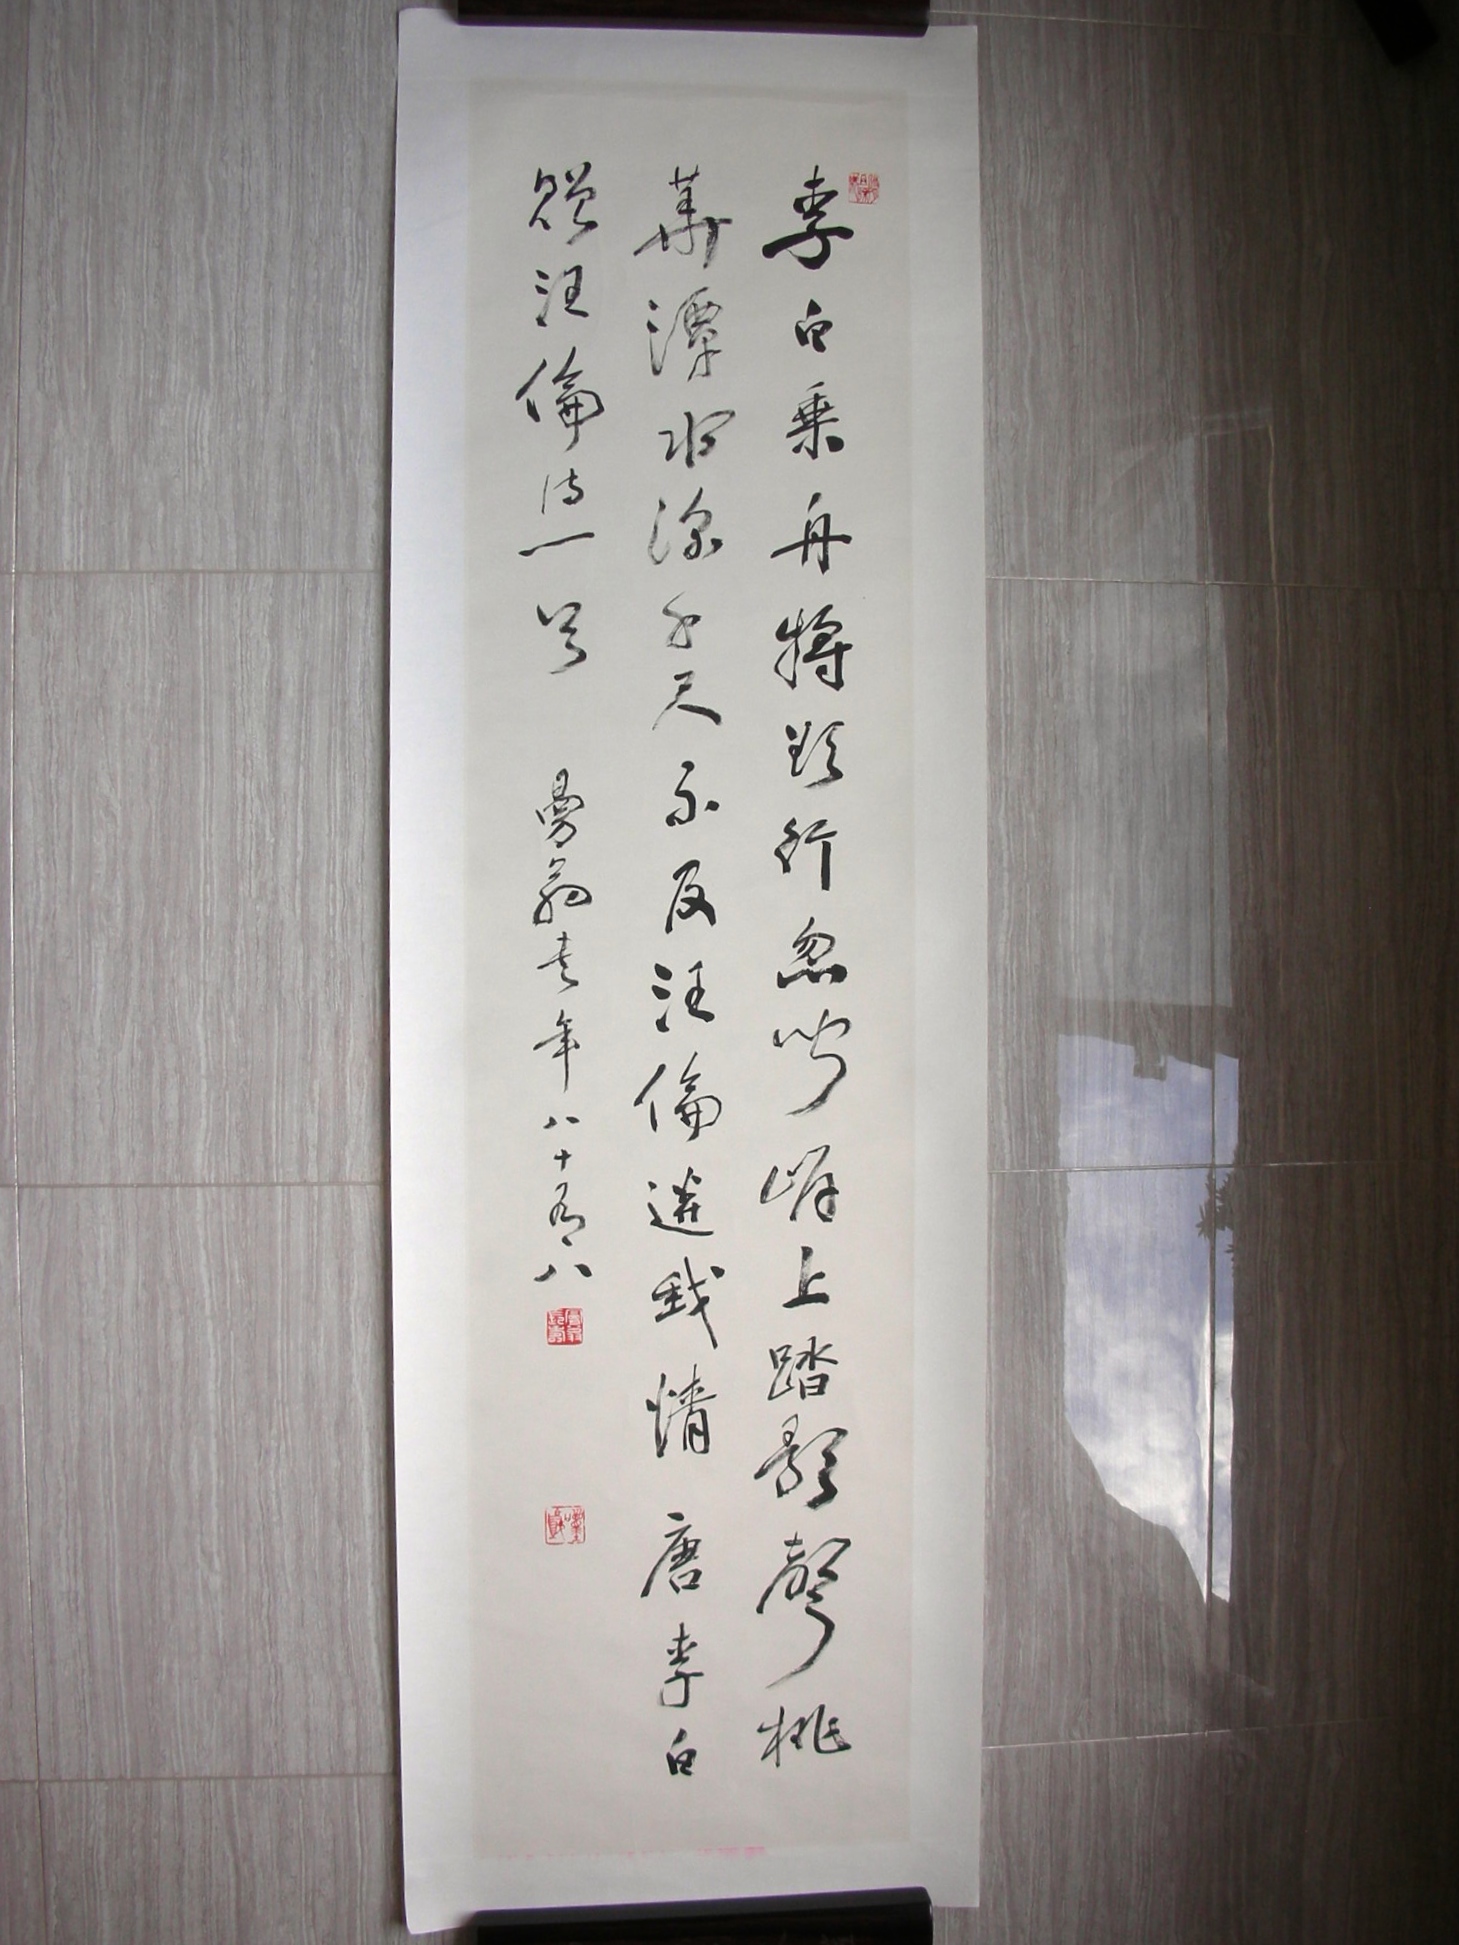 李白乘舟將欲行忽聞岸上踏歌聲桃
華潭水深千尺不及汪倫送我情唐李白
贈汪倫詩一首 曼翁書年八十有八